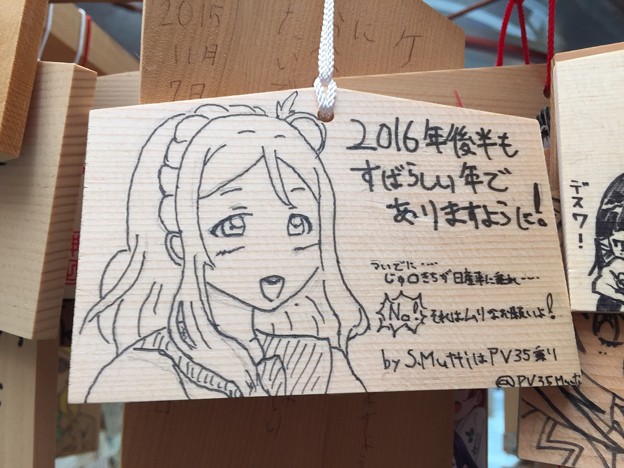 2015
11月
7日
2016年後半も
すばらしい年で
ありますように!
ついでに…
じゅロきちが日産車に乗れ…
No!
それはムリなお願いよ!
by S.MuttiはPV35乗り
@PV35Mutti
デスワ!